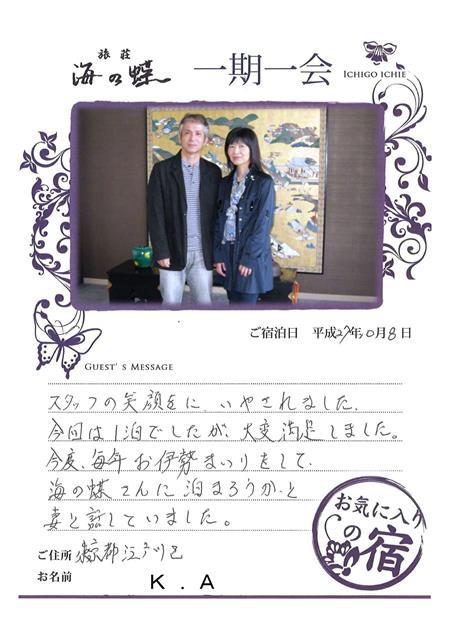 旅荘
海の蝶
一期一会
ICHIGO ICHIE
ご宿泊日 平成27年10月8日
GUEST'S MESSAGE
スタッフの笑顔をに、いやされました。
今回は1泊でしたが、大変満足しました。
今度、毎年お伊勢まいりをして、
海の蝶さんに泊まろうか、と
妻と話していました。
お気に入り
の宿
ご住所 東京都江戸川区
お名前 K.A